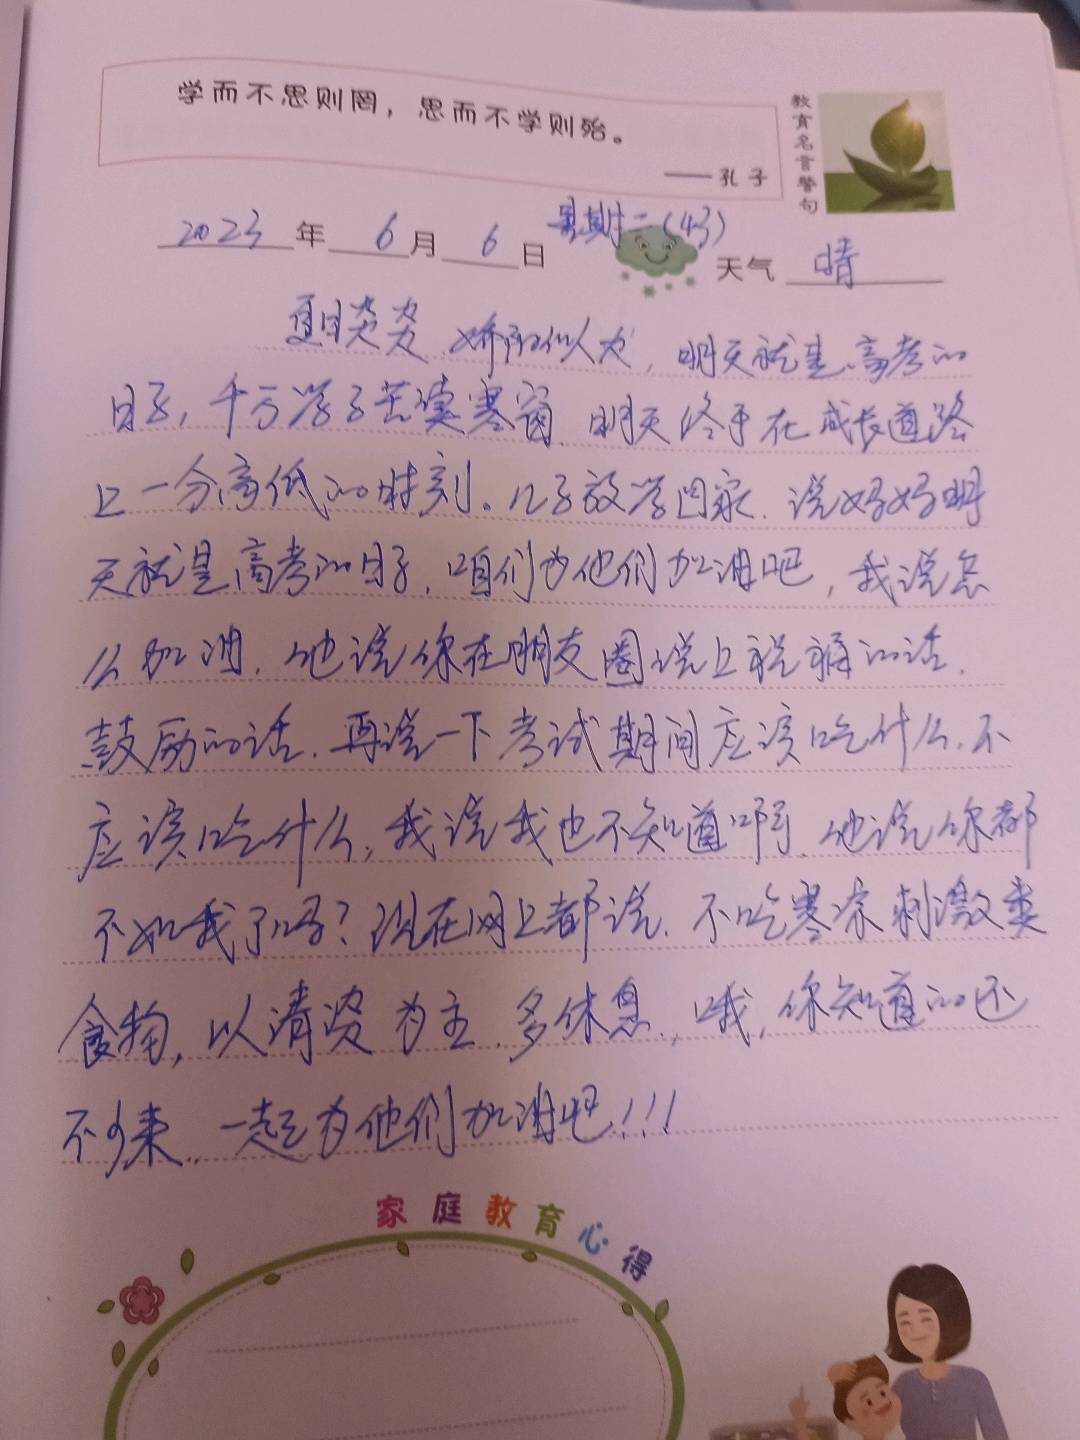 学而不思则罔，思而不学则殆。
——孔子
教育名言警句
2023年6月6日 星期二(43) 天气 晴
夏日炎炎，娇阳似火，明天就是高考的
日子，千万学子苦读寒窗，明天终于在成长道路
上一分高低的时刻。儿子放学回家，说妈妈明
天就是高考的日子，咱们为他们加油吧，我说怎
么加油，他说你在朋友圈说上祝福的话，
鼓励的话，再说一下考试期间应该吃什么，不
应该吃什么，我说我也不知道啊，他说你都
不如我了吗？现在网上都说，不吃寒凉刺激类
食物，以清淡为主，多休息，哦，你知道的还
不少来，一起为他们加油吧！！！
家庭教育心得